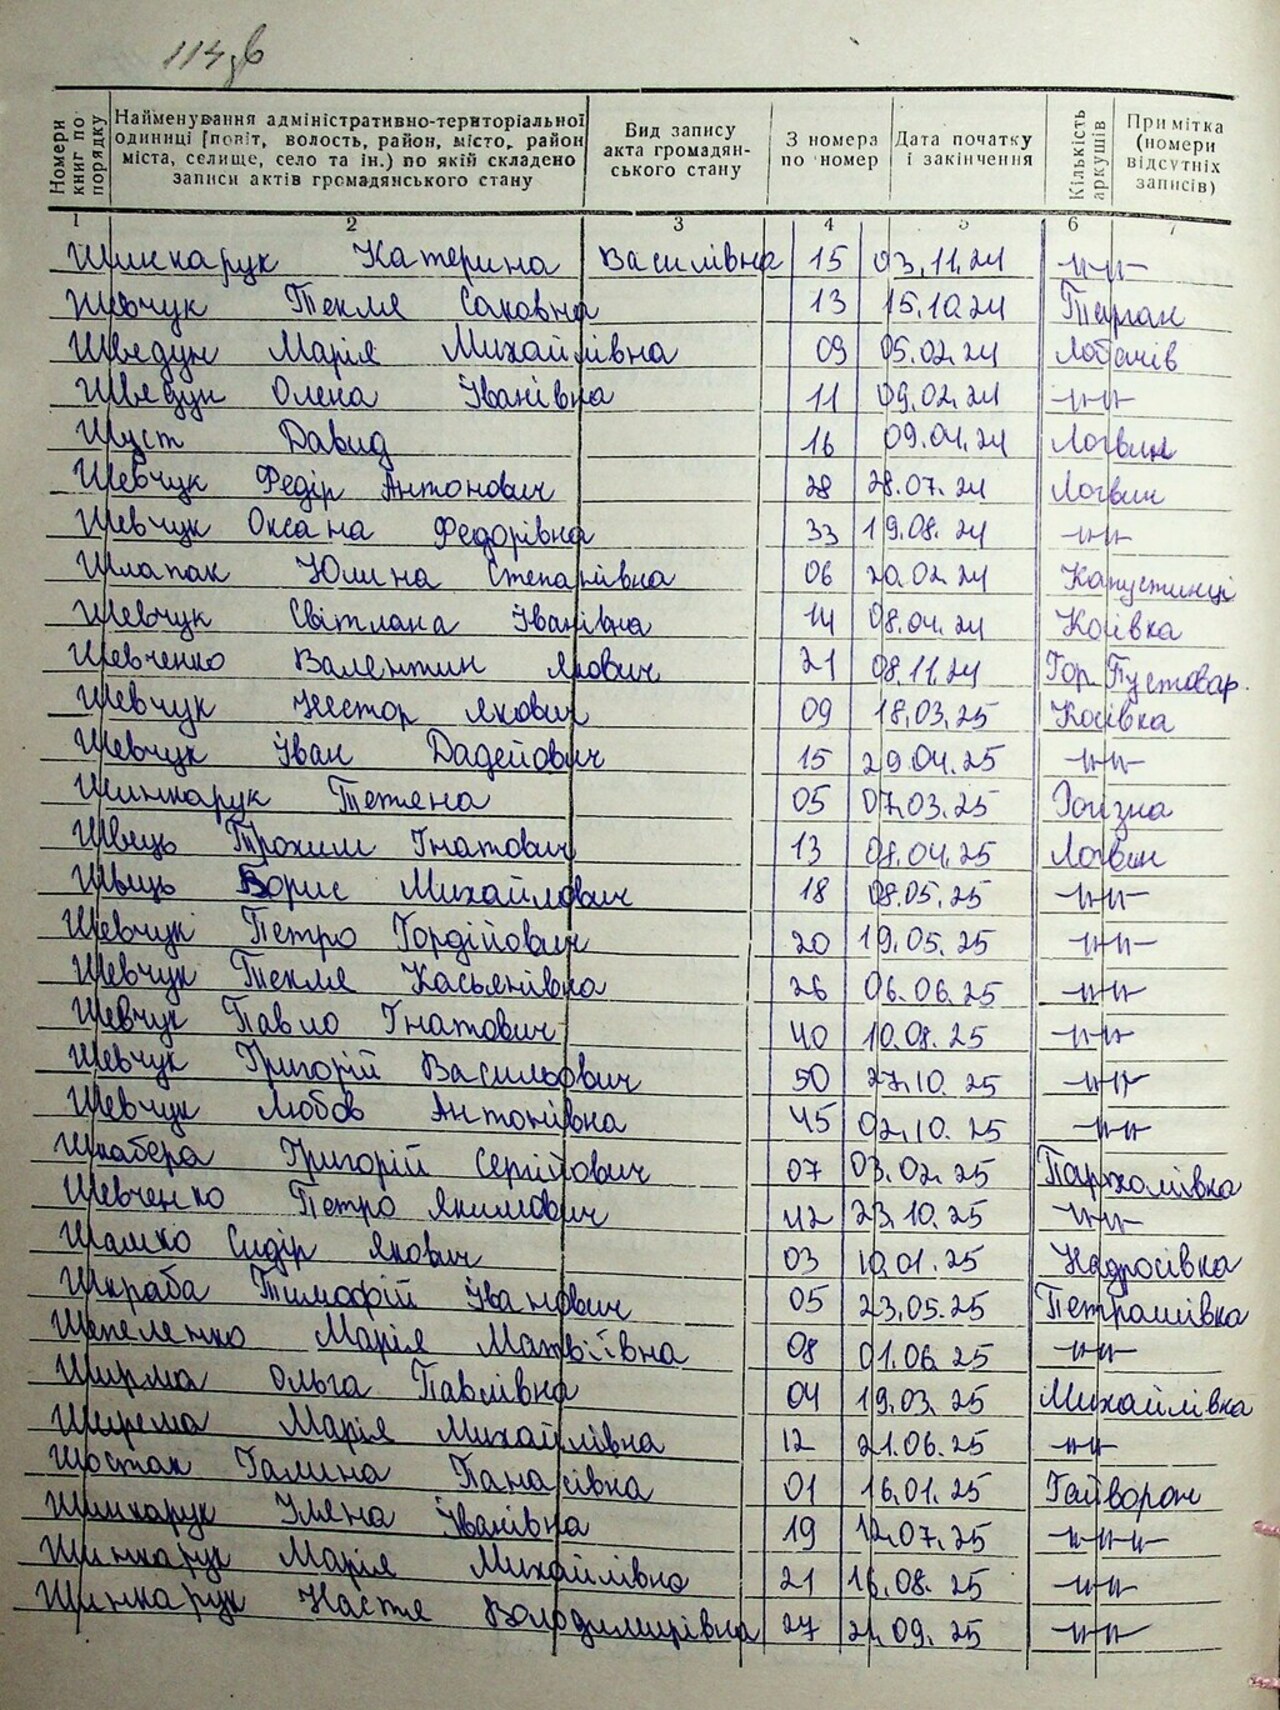 114зв
Номери книг по порядку
Найменування адміністративно-територіальної одиниці [повіт, волость, район, місто, район міста, селище, село та ін.) по якій складено записи актів громадянського стану
Вид запису акта громадян-ського стану
З номера по номер
Дата початку і закінчення
Кількість аркушів
Примітка (номери відсутніх записів)
1 2 3 4 5 6 7
Шинкарук Катерина Василівна 15 03.11.24 -"-"-
Шевчук Текля Саковна 13 15.10.24 Тарган
Шведун Марія Михайлівна 09 05.02.24 Лобачів
Шведун Олена Іванівна 11 09.02.24 -"-"-
Шуст Давид 16 09.04.24 Логвин
Шевчук Федір Антонович 28 28.07.24 Логвин
Шевчук Оксана Федорівна 33 19.08.24 -"-"-
Шлапак Юлина Степанівна 06 20.02.24 Капустинці
Шевчук Світлана Іванівна 14 08.04.24 Косівка
Шевченко Валентин Якович 21 08.11.24 Гор. Пустовар.
Шевчук Нестор Якович 09 18.03.25 Косівка
Шевчук Іван Дадейович 15 29.04.25 -"-"-
Шинкарук Тетяна 05 07.03.25 Рогізна
Швець Трохим Гнатович 13 08.04.25 Логвин
Швець Борис Михайлович 18 08.05.25 -"-"-
Шевчук Петро Гордійович 20 19.05.25 -"-"-
Шевчук Текля Касьянівна 26 06.06.25 -"-"-
Шевчук Павло Гнатович 40 10.08.25 -"-"-
Шевчук Григорій Васильович 50 27.10.25 -"-"-
Шевчук Любов Антонівна 45 02.10.25 -"-"-
Шкабера Григорій Сергійович 07 03.02.25 Пархомівка
Шевченко Петро Якимович 42 23.10.25 -"-"-
Шамко Сидір Якович 03 10.01.25 Надросівка
Шкраба Тимофій Іванович 05 23.05.25 Петрашівка
Шепеленко Марія Матвіївна 08 01.06.25 -"-"-
Ширма Ольга Павлівна 04 19.03.25 Михайлівка
Ширема Марія Михайлівна 12 21.06.25 -"-"-
Шостак Галина Панасівна 01 16.01.25 Гайворон
Шинкарук Уляна Іванівна 19 12.07.25 -"-"-
Шинкарук Марія Михайлівна 21 16.08.25 -"-"-
Шинкарук Настя Володимирівна 27 21.09.25 -"-"-